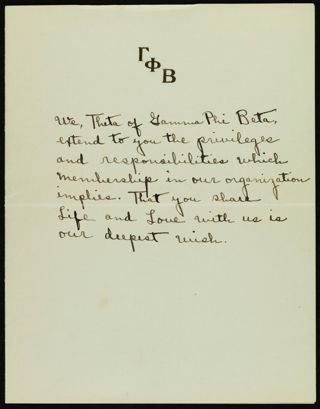 ΓΦΒ
We, Theta of Gamma Phi Beta,
extend to you the privileges
and responsibilities which
membership in our organization
implies. That you share
Life and Love with us is
our deepest wish.